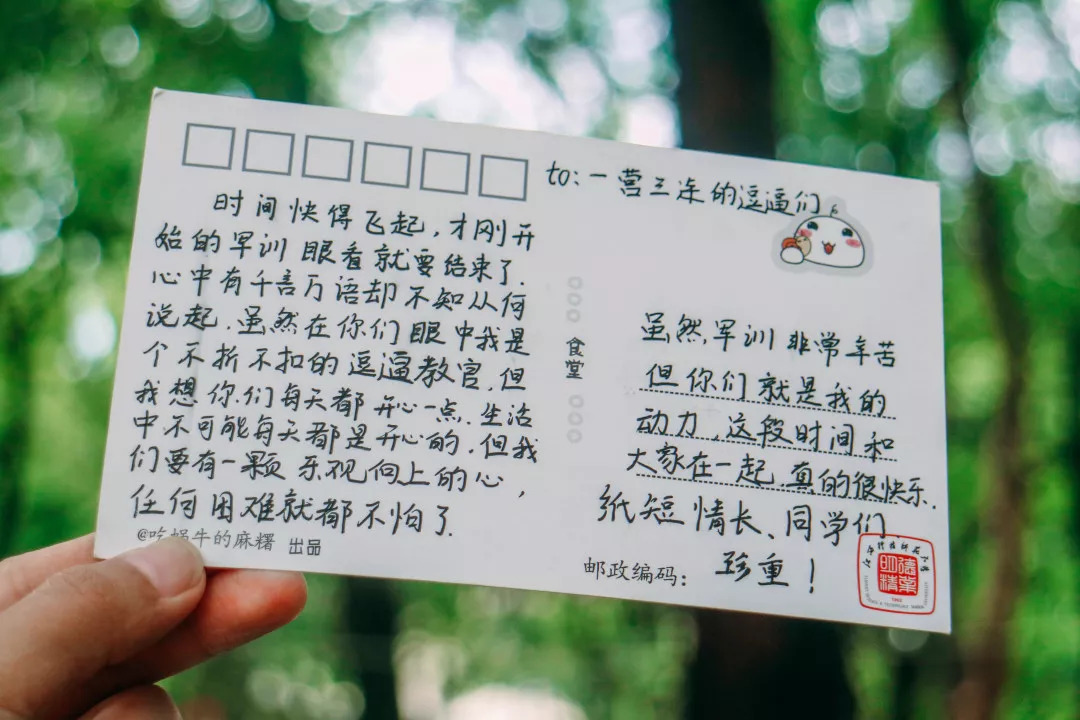 to:一营三连的逗逼们。
时间快得飞起,才刚开
始的军训 眼看就要结束了.
心中有千言万语却不知从何
说起.虽然在你们眼中我是
个不折不扣的逗逼教官.但
我想你们每天都开心一点.生活
中不可能每天都是开心的,但我
们要有一颗 乐观向上的心,
任何困难就都不怕了.
@吃蜗牛的麻糬 出品
食堂
虽然军训非常辛苦
但你们就是我的
动力,这段时间和
大家在一起,真的很快乐.
纸短情长、同学们
邮政编码: 珍重!